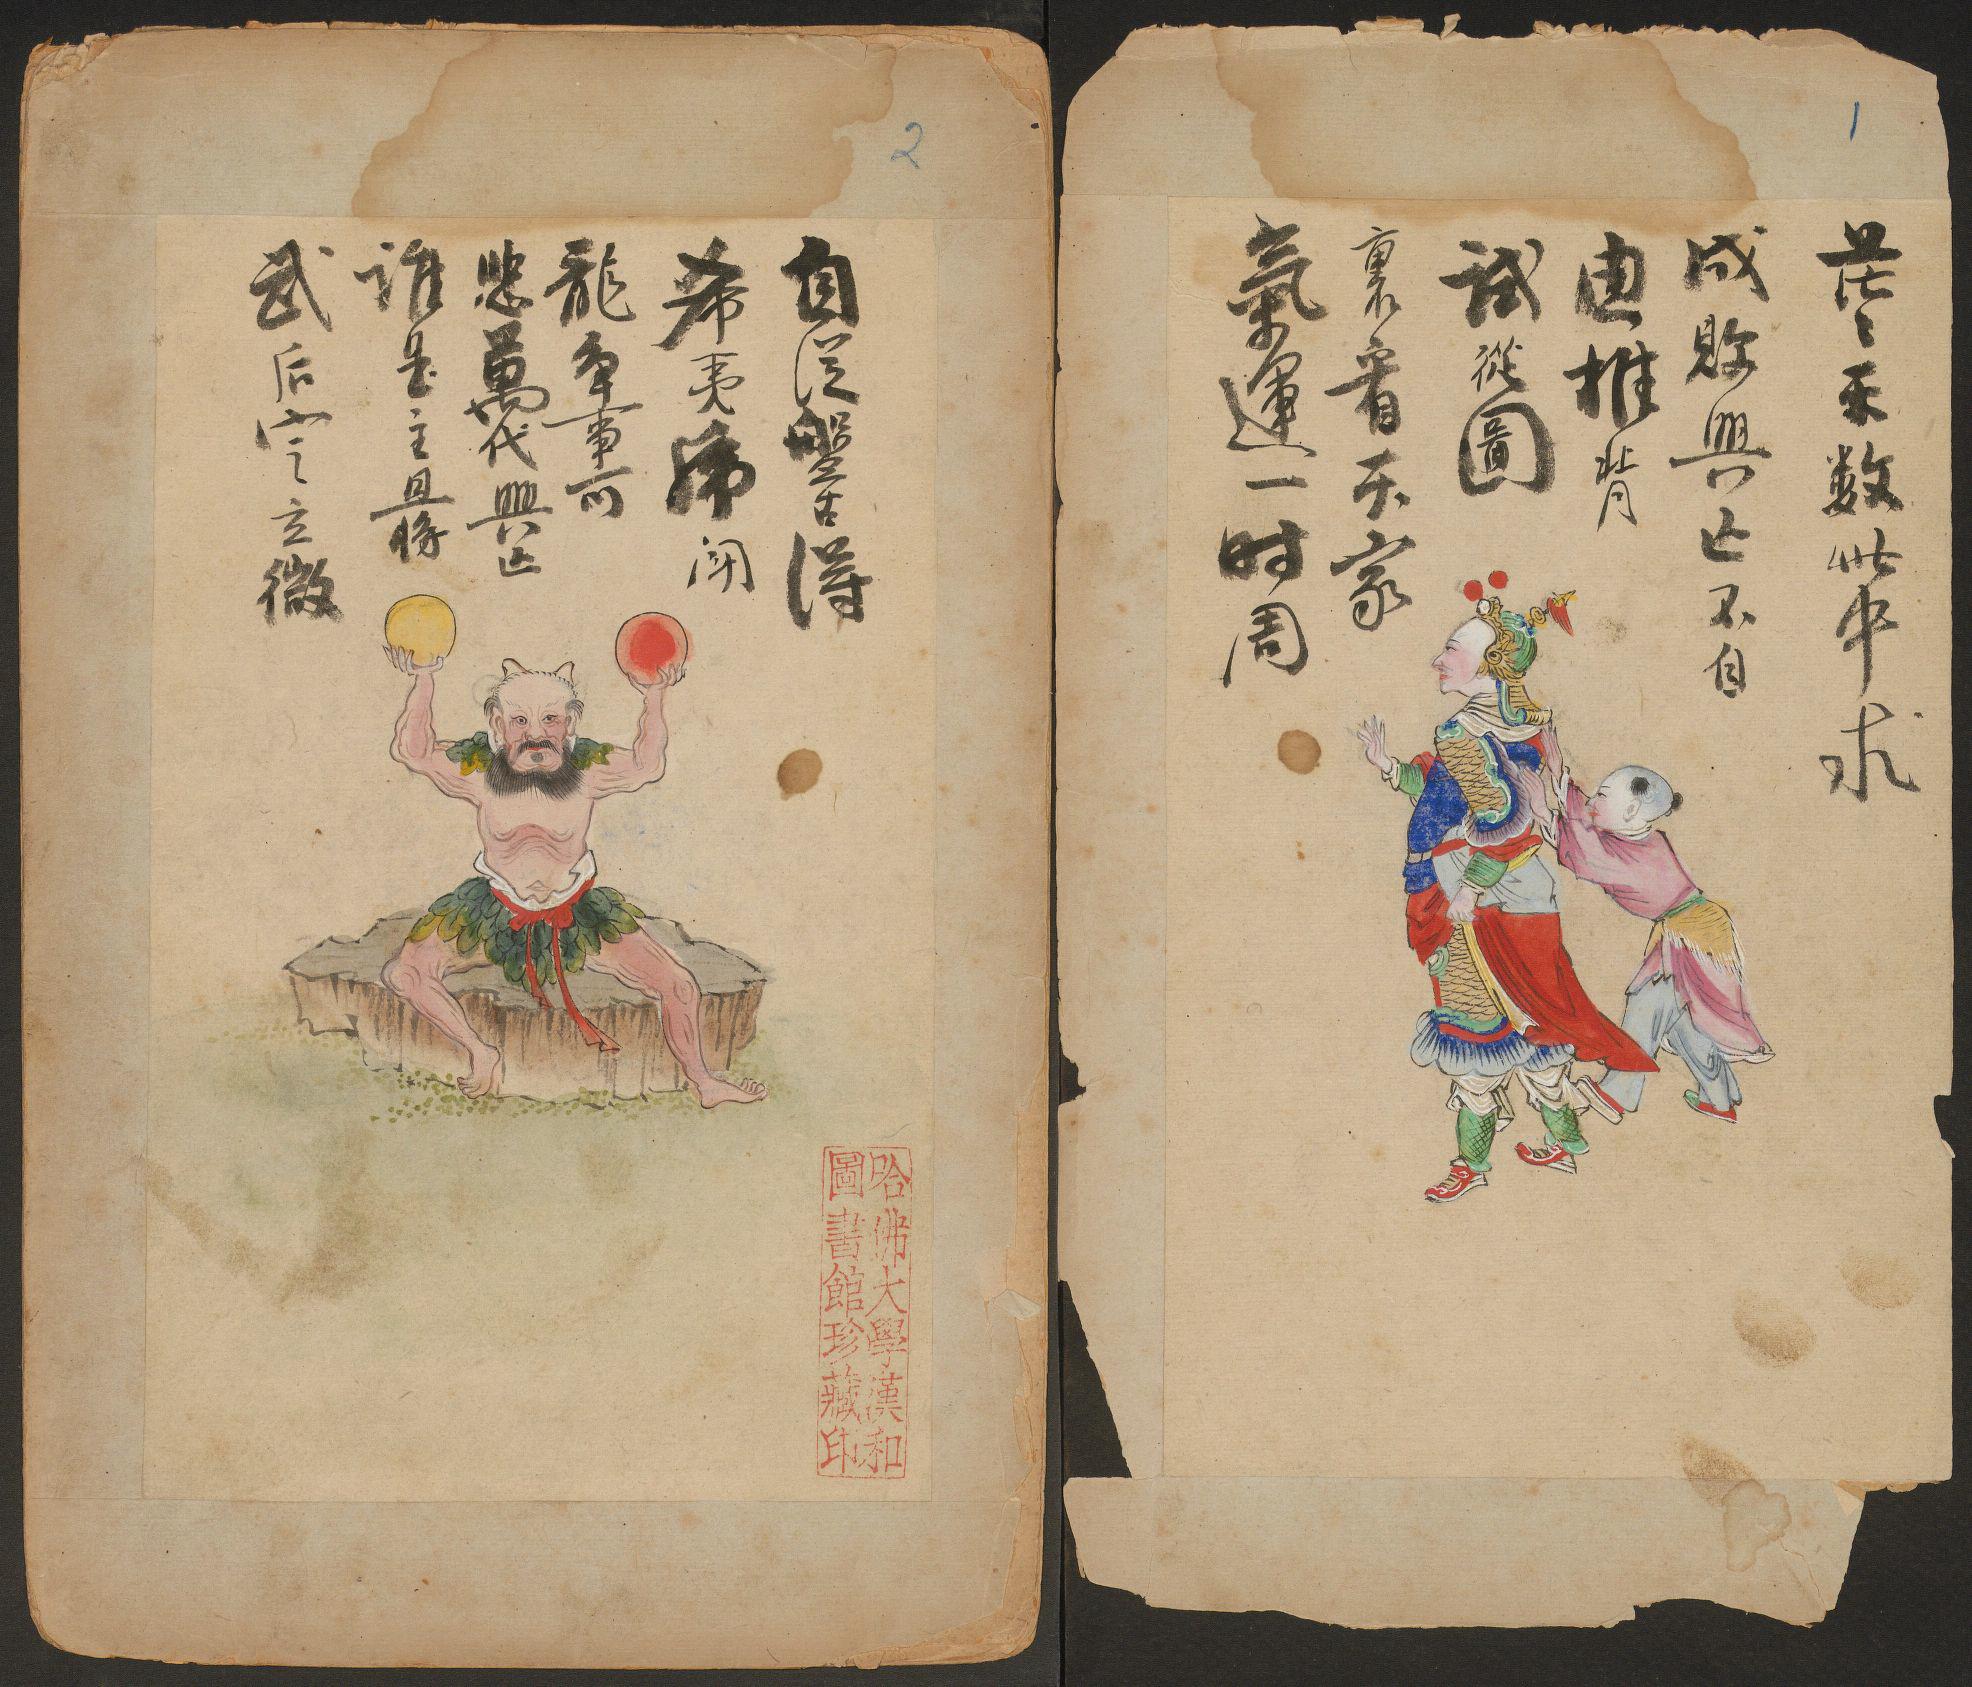 1
茫〻天数此中求
成敗興亡不自
由推背
試從圖
裏看天家
氣運一時周
2
自從盤古得
希夷乕鬥
龍争事可
悲萬代興亡
誰是主且
武后定立微
哈佛大學漢和
圖書館珍藏印